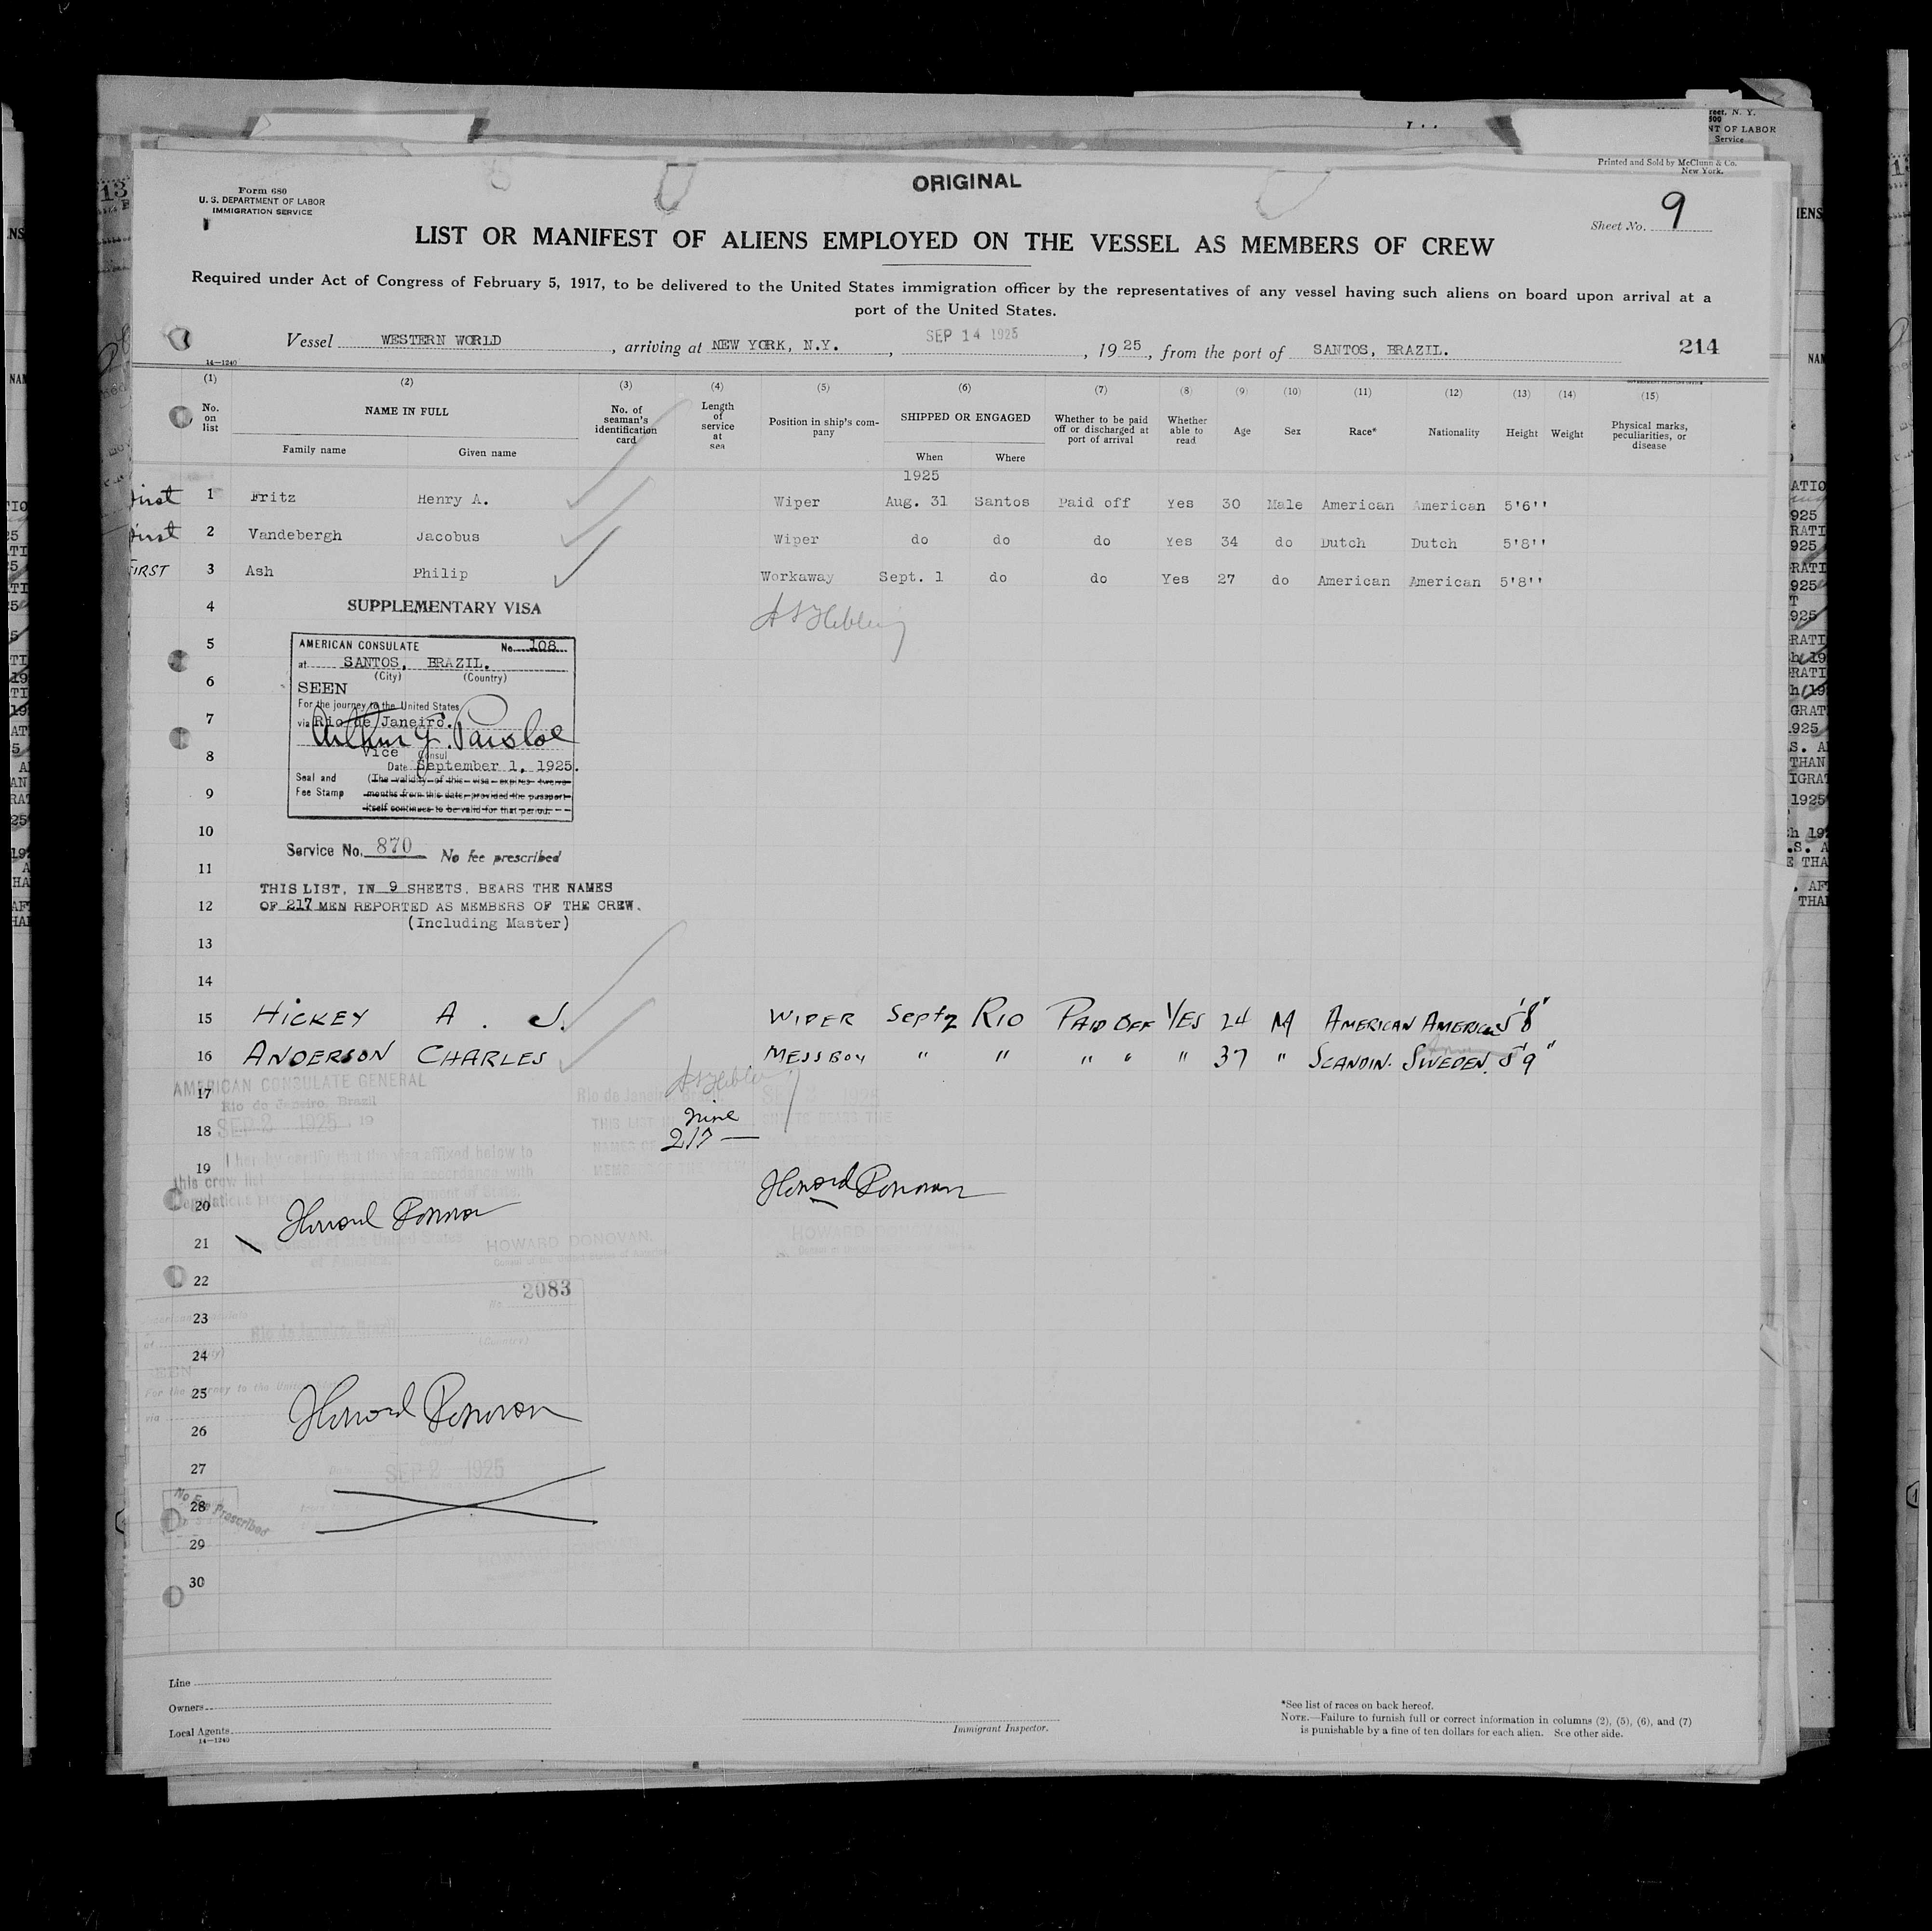 Form 680
U. S. DEPARTMENT OF LABOR
IMMIGRATION SERVICE
ORIGINAL
Printed and Sold by McClunn & Co.
New York.
Sheet No. 9
LIST OR MANIFEST OF ALIENS EMPLOYED ON THE VESSEL AS MEMBERS OF CREW
Required under Act of Congress of February 5, 1917, to be delivered to the United States immigration officer by the representatives of any vessel having such aliens on board upon arrival at a
port of the United States.
Vessel WESTERN WORLD, arriving at NEW YORK, N.Y., SEP 14 1925, 1925, from the port of SANTOS, BRAZIL. 214
14—1240
(1) (2) (3) (4) (5) (6) (7) (8) (9) (10) (11) (12) (13) (14) (15)
No. on list NAME IN FULL No. of seaman's identification card Length of service at sea Position in ship's company SHIPPED OR ENGAGED Whether to be paid off or discharged at port of arrival Whether able to read Age Sex Race* Nationality Height Weight Physical marks, peculiarities, or disease
Family name Given name When Where
1925
First 1 Fritz Henry A. Wiper Aug. 31 Santos Paid off Yes 30 Male American American 5'6''
First 2 Vandebergh Jacobus Wiper do do do Yes 34 do Dutch Dutch 5'8''
FIRST 3 Ash Philip Workaway Sept. 1 do do Yes 27 do American American 5'8''
4 SUPPLEMENTARY VISA
5 AMERICAN CONSULATE No. 108
at SANTOS, BRAZIL.
(City) (Country)
6 SEEN
For the journey to the United States
7 via Rio de Janeiro.
Arthur G. Parsloe
8 Vice Consul
Date September 1, 1925.
Seal and (The validity of this visa expires twelve
9 Fee Stamp months from this date, provided the passport
itself continues to be valid for that period.
10
Service No. 870 No fee prescribed
11
THIS LIST, IN 9 SHEETS. BEARS THE NAMES
12 OF 217 MEN REPORTED AS MEMBERS OF THE CREW.
(Including Master)
13
14
15 HICKEY A. J. WIPER Sept 2 RIO PAID OFF YES 24 M AMERICAN AMERICAN 5'8"
16 ANDERSON CHARLES MESSBOY " " " " " 37 " SCANDIN. SWEDEN. 5'9"
AMERICAN CONSULATE GENERAL
17 Rio de Janeiro, Brazil Rio de Janeiro, Brazil, SEP 2 1925
SEP 2 1925, 19 THIS LIST IN Nine SHEETS BEARS THE
18 NAMES OF 217 —
I hereby certify that the visa affixed below to
19 this crew list in accordance with
20 Howard Donovan Howard Donovan
21 Vice Consul of the United States
of America.
HOWARD DONOVAN. HOWARD DONOVAN.
22
2083
23
Rio de Janeiro, Brazil
(Country)
24
SEEN
For the journey to the United States
25
via
Howard Donovan
26
27 SEP 2 1925
28 No Fee Prescribed
29
30
Line
Owners
Local Agents
14—1240
Immigrant Inspector.
*See list of races on back hereof.
NOTE.—Failure to furnish full or correct information in columns (2), (5), (6), and (7)
is punishable by a fine of ten dollars for each alien. See other side.